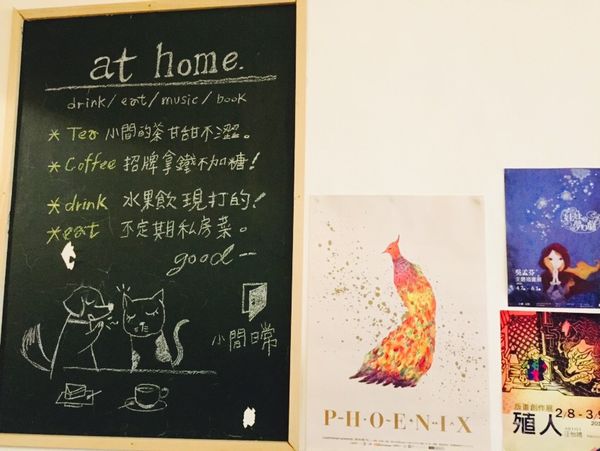 at home.
drink/eat/music/book
* Tea 小間的茶甘甜不澀。
* Coffee 招牌拿鐵不加糖!
* drink 水果飲現打的!
* eat 不定期私房菜。
good--
小間日常
P·H·O·E·N·I·X
吳孟芬
版畫創作展
2/8-3/9
殖人